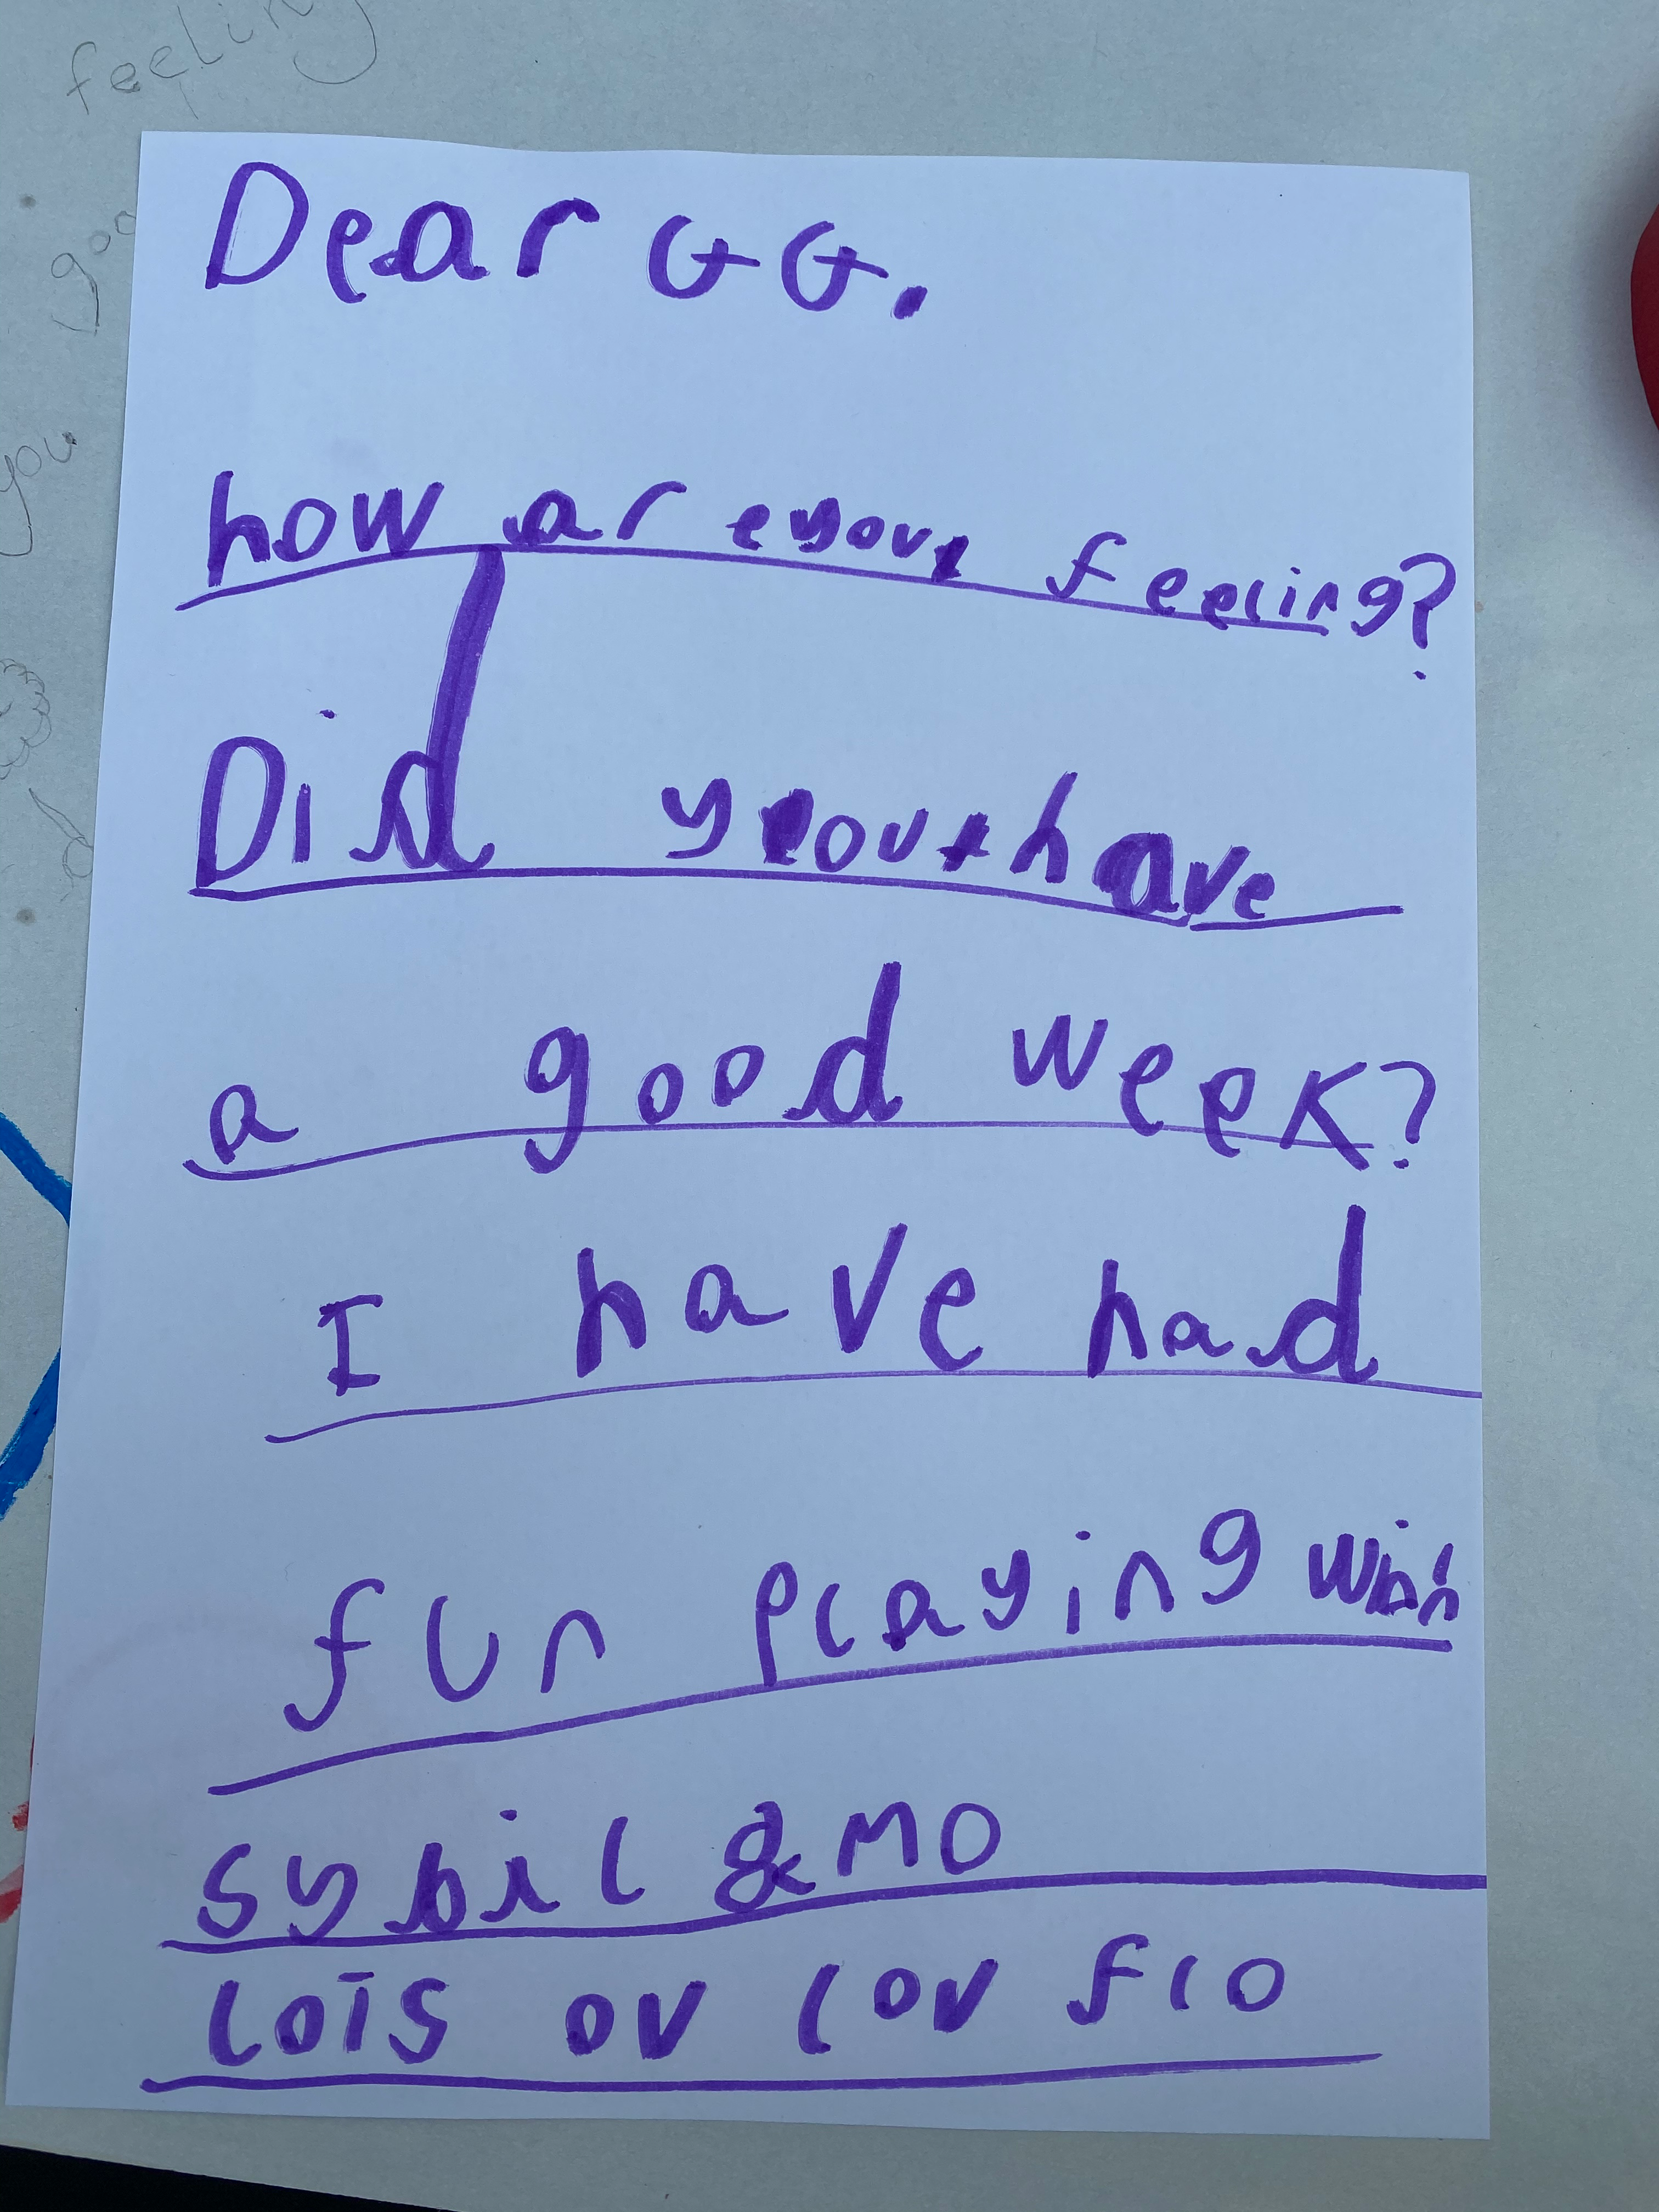 feeling
goo
you
d
Dear GG.
how are you feeling?
Did you have
a good week?
I have had
fun playing with
sybil & MO
lois ov lov flo